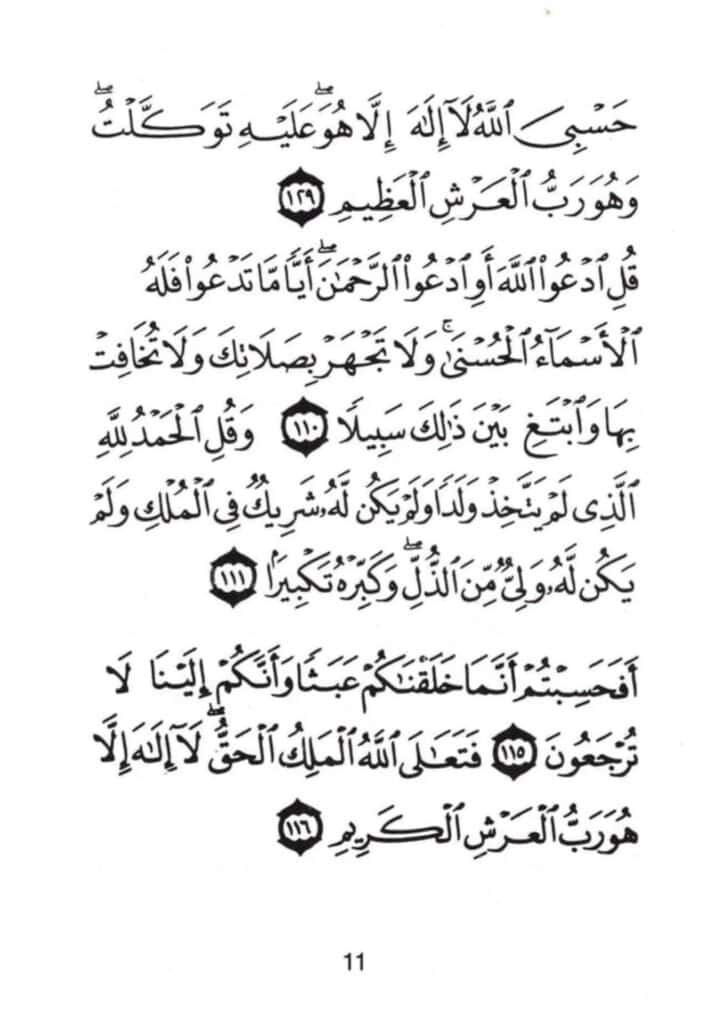 حَسْبِىَ ٱللَّهُ لَآ إِلَٰهَ إِلَّا هُوَ ۖ عَلَيْهِ تَوَكَّلْتُ ۖ
وَهُوَ رَبُّ ٱلْعَرْشِ ٱلْعَظِيمِ ١٢٩
قُلِ ٱدْعُوا۟ ٱللَّهَ أَوِ ٱدْعُوا۟ ٱلرَّحْمَٰنَ ۖ أَيًّا مَّا تَدْعُوا۟ فَلَهُ
ٱلْأَسْمَآءُ ٱلْحُسْنَىٰ ۚ وَلَا تَجْهَرْ بِصَلَاتِكَ وَلَا تُخَافِتْ
بِهَا وَٱبْتَغِ بَيْنَ ذَٰلِكَ سَبِيلًا ١١٠ وَقُلِ ٱلْحَمْدُ لِلَّهِ
ٱلَّذِى لَمْ يَتَّخِذْ وَلَدًا وَلَمْ يَكُن لَّهُۥ شَرِيكٌ فِى ٱلْمُلْكِ وَلَمْ
يَكُن لَّهُۥ وَلِىٌّ مِّنَ ٱلذُّلِّ ۖ وَكَبِّرْهُ تَكْبِيرًۢا ١١١
أَفَحَسِبْتُمْ أَنَّمَا خَلَقْنَٰكُمْ عَبَثًا وَأَنَّكُمْ إِلَيْنَا لَا
تُرْجَعُونَ ١١٥ فَتَعَٰلَى ٱللَّهُ ٱلْمَلِكُ ٱلْحَقُّ ۖ لَآ إِلَٰهَ إِلَّا
هُوَ رَبُّ ٱلْعَرْشِ ٱلْكَرِيمِ ١١٦
11